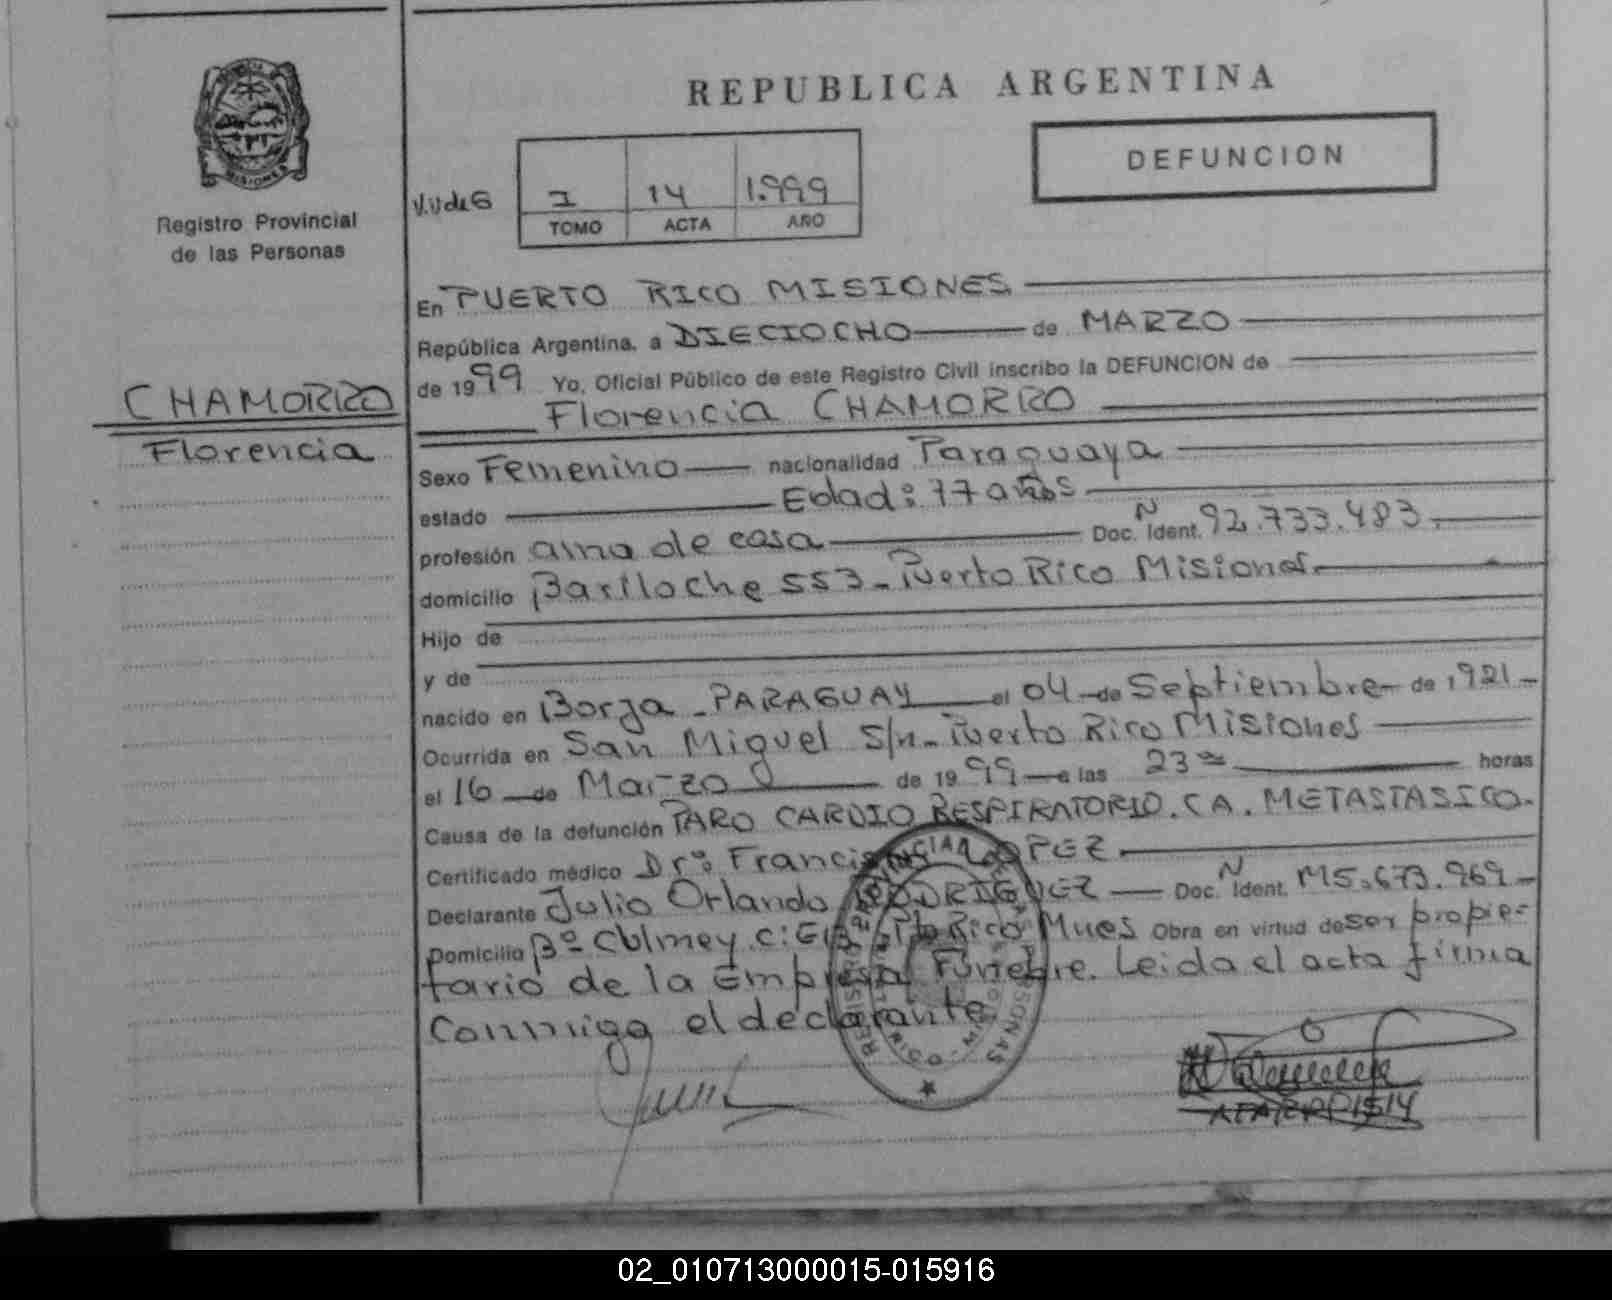 REPUBLICA ARGENTINA
DEFUNCION
MISIONES
Registro Provincial
de las Personas
I 14 1.999
TOMO ACTA AÑO
En PUERTO RICO MISIONES
República Argentina, a DIECIOCHO de MARZO
de 1999 Yo, Oficial Público de este Registro Civil inscribo la DEFUNCION de
CHAMORRO
Florencia
Florencia CHAMORRO
Sexo Femenino nacionalidad Paraguaya
estado Edad: 77 años
profesión ama de casa Doc. N Ident. 92.733.483.
domicilio Bariloche 553 - Puerto Rico Misiones.
Hijo de
y de
nacido en Borja - PARAGUAY el 04 de Septiembre de 1921
Ocurrida en San Miguel S/n - Puerto Rico Misiones
el 16 de Marzo de 1999 a las 23 horas
Causa de la defunción PARO CARDIO RESPIRATORIO. CA. METASTASICO.
Certificado médico Dr: Francisco LOPEZ
Declarante Julio Orlando RODRIGUEZ Doc. N Ident. M5.673.969
Domicilio Bº Culmey C: Pto Rico Mnes Obra en virtud de ser propie=
tario de la Empresa Funebre. Leida el acta firma
conmigo el declarante
02_010713000015-015916